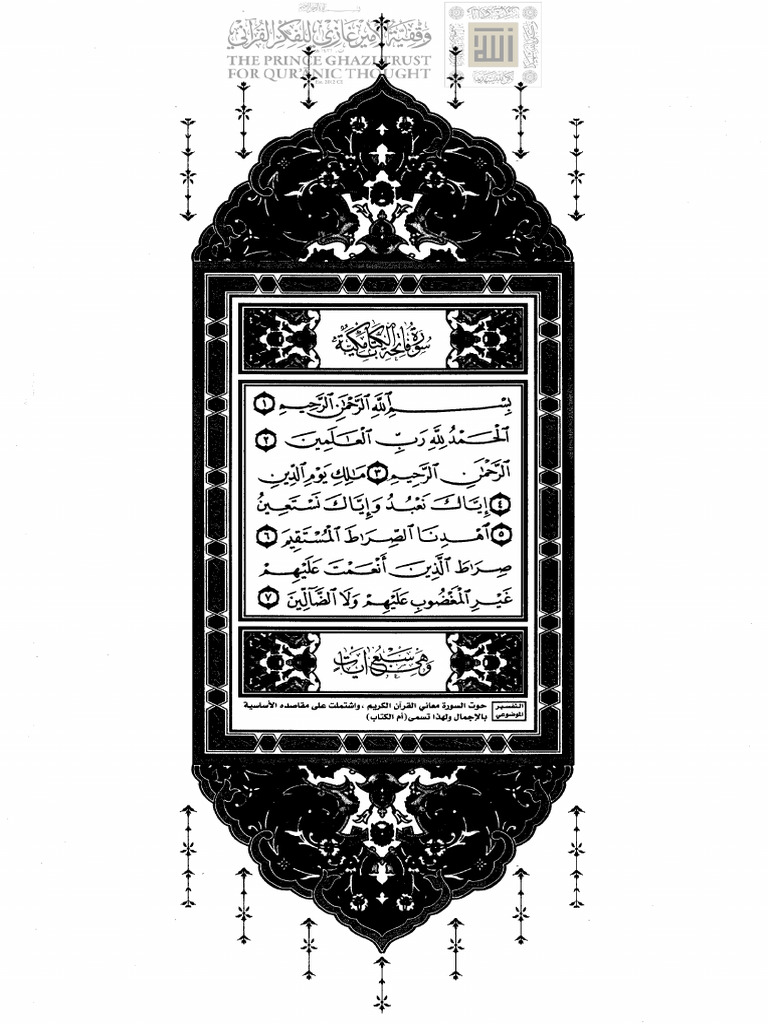 وقفية الأمير غازي للفكر القرآني
THE PRINCE GHAZI TRUST
FOR QUR'ANIC THOUGHT
الله
سورة فاتحة الكتاب مكية
بِسْمِ ٱللَّهِ ٱلرَّحْمَٰنِ ٱلرَّحِيمِ ١
ٱلْحَمْدُ لِلَّهِ رَبِّ ٱلْعَٰلَمِينَ ٢
ٱلرَّحْمَٰنِ ٱلرَّحِيمِ ٣ مَٰلِكِ يَوْمِ ٱلدِّينِ
٤ إِيَّاكَ نَعْبُدُ وَإِيَّاكَ نَسْتَعِينُ
٥ ٱهْدِنَا ٱلصِّرَٰطَ ٱلْمُسْتَقِيمَ ٦
صِرَٰطَ ٱلَّذِينَ أَنْعَمْتَ عَلَيْهِمْ
غَيْرِ ٱلْمَغْضُوبِ عَلَيْهِمْ وَلَا ٱلضَّآلِّينَ ٧
وهي سبع آيات
التفسير الموضوعي
حوت السورة معاني القرآن الكريم ، واشتملت على مقاصده الأساسية
بالإجمال ولهذا تسمى (أم الكتاب)